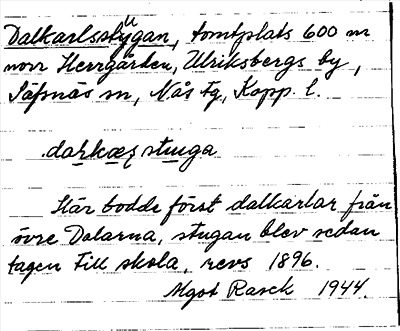 Dalkarlsstugan, tomtplats 600 m
norr Herrgården, Ulriksbergs by,
Säfsnäs sn, Nås tg, Kopp. l.
daḷkæṣstuga
Här bodde först dalkarlar från
övre Dalarna, stugan blev sedan
tagen till skola, revs 1896.
Mgot Rasck 1944.